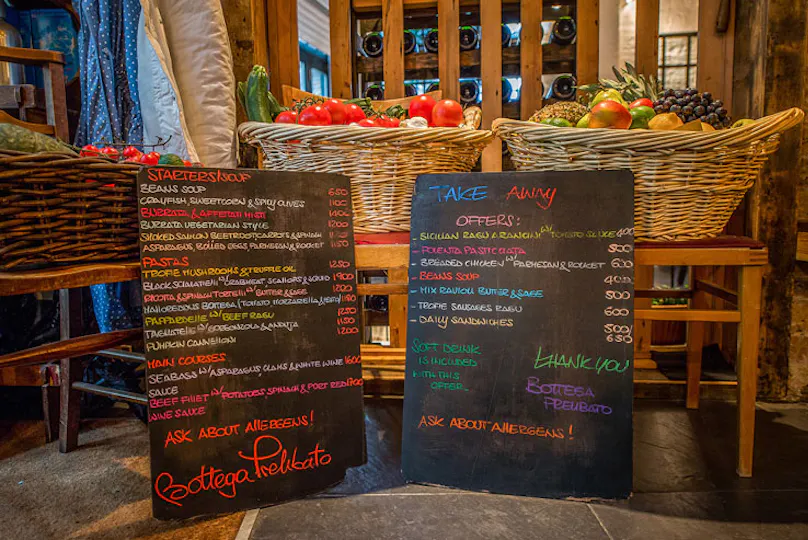 STARTERS/SOUP
BEANS SOUP 650
CRAYFISH, SWEETCORN & SPICY OLIVES 1100
BURRATA & AFFETTATI MISTI
BURRATA VEGETARIAN STYLE
SMOKED SALMON BEETROOT CARROTS & SPINACH
ASPARAGUS, BOILED EGGS, PARMESAN & ROCKET 1150
PASTAS
TROFIE MUSHROOMS & TRUFFLE OIL
BLACK W/CRABMEAT SCALLOPS &
RICOTTA & SPINACH TORTELLI W/BUTTER & SAGE
BOTTEGA (TOMATO MOZZARELLA
PAPPARDELLE W/ BEEF RAGU
TAGLIATELLE W/GORGONZOLA & 1200
PUMPKIN CANNELLONI
MAIN COURSES
SEABASS W/ASPARAGUS, CLAMS & WHITE WINE 1600
SAUCE
BEEF FILLET W/POTATOES, SPINACH & PORT RED 1900
WINE SAUCE
ASK ABOUT ALLERGENS!
Bottega Prelibato
TAKE AWAY
OFFERS:
- SICILIAN RAGU ARANCINI W/ TOMATO SAUCE 400
- POLENTA PASTICCIATA 500
- BREADED CHICKEN W/ PARMESAN & ROCKET 600
- BEANS SOUP 400
- MIX RAVIOLI BUTTER & SAGE 500
- TROFIE SAUSAGES RAGU 600
- DAILY SANDWICHES 500/
650
SOFT DRINK
IS INCLUDED
WITH THIS
OFFER...
THANK YOU
BOTTEGA
PRELIBATO
ASK ABOUT ALLERGENS!